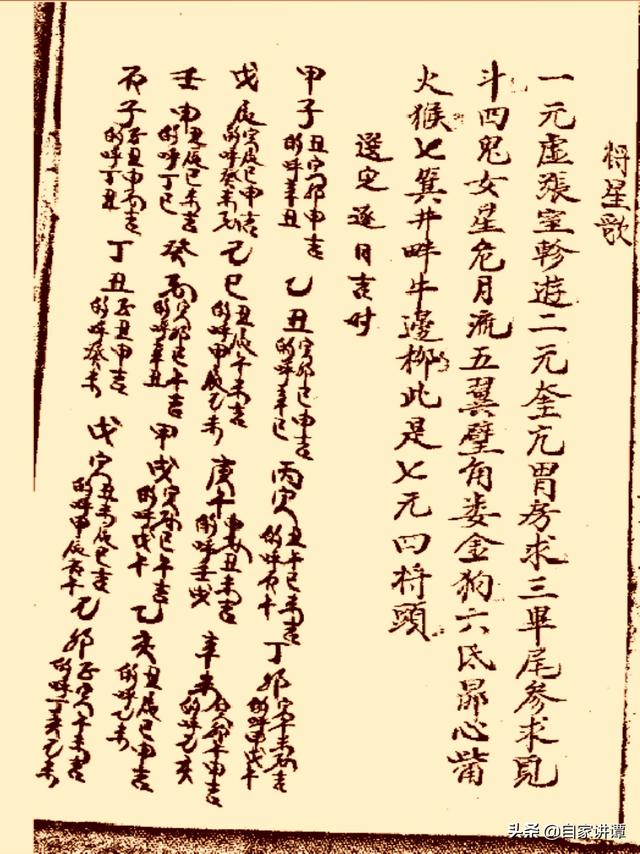 将星歌
一元虚張室軫遊二元奎亢胃房求三畢尾参求覓
斗四鬼女星危月流五翼壁角娄金狗六氐昴心觜
火猴七箕井畔牛邊柳此是七元四将頭
選定逐日吉时
甲子 丑寅卯申吉 的呼辛丑 乙丑 寅卯巳申吉 的呼辛巳 丙寅 丑午巳未吉 的呼丙午 丁卯 寅午未吉 的呼甲戌午
戊辰 寅辰巳申吉 的呼癸未 乙巳 丑辰午未吉 的呼甲辰乙未 庚午 丑未吉 的呼壬戌 辛未 卯午申吉 的呼乙亥
壬申 丑辰巳未吉 的呼丁巳 癸酉 寅卯巳午吉 的呼辛丑 甲戌 寅巳午吉 的呼戊午 乙亥 丑辰巳申吉 的呼乙未
丙子 子丑申吉 的呼丁丑 丁丑 子丑申吉 的呼癸未 戊寅 丑未辰巳吉 的呼甲辰丙午 乙卯 子寅午未吉 的呼丁亥乙未
头条 @自家讲谭